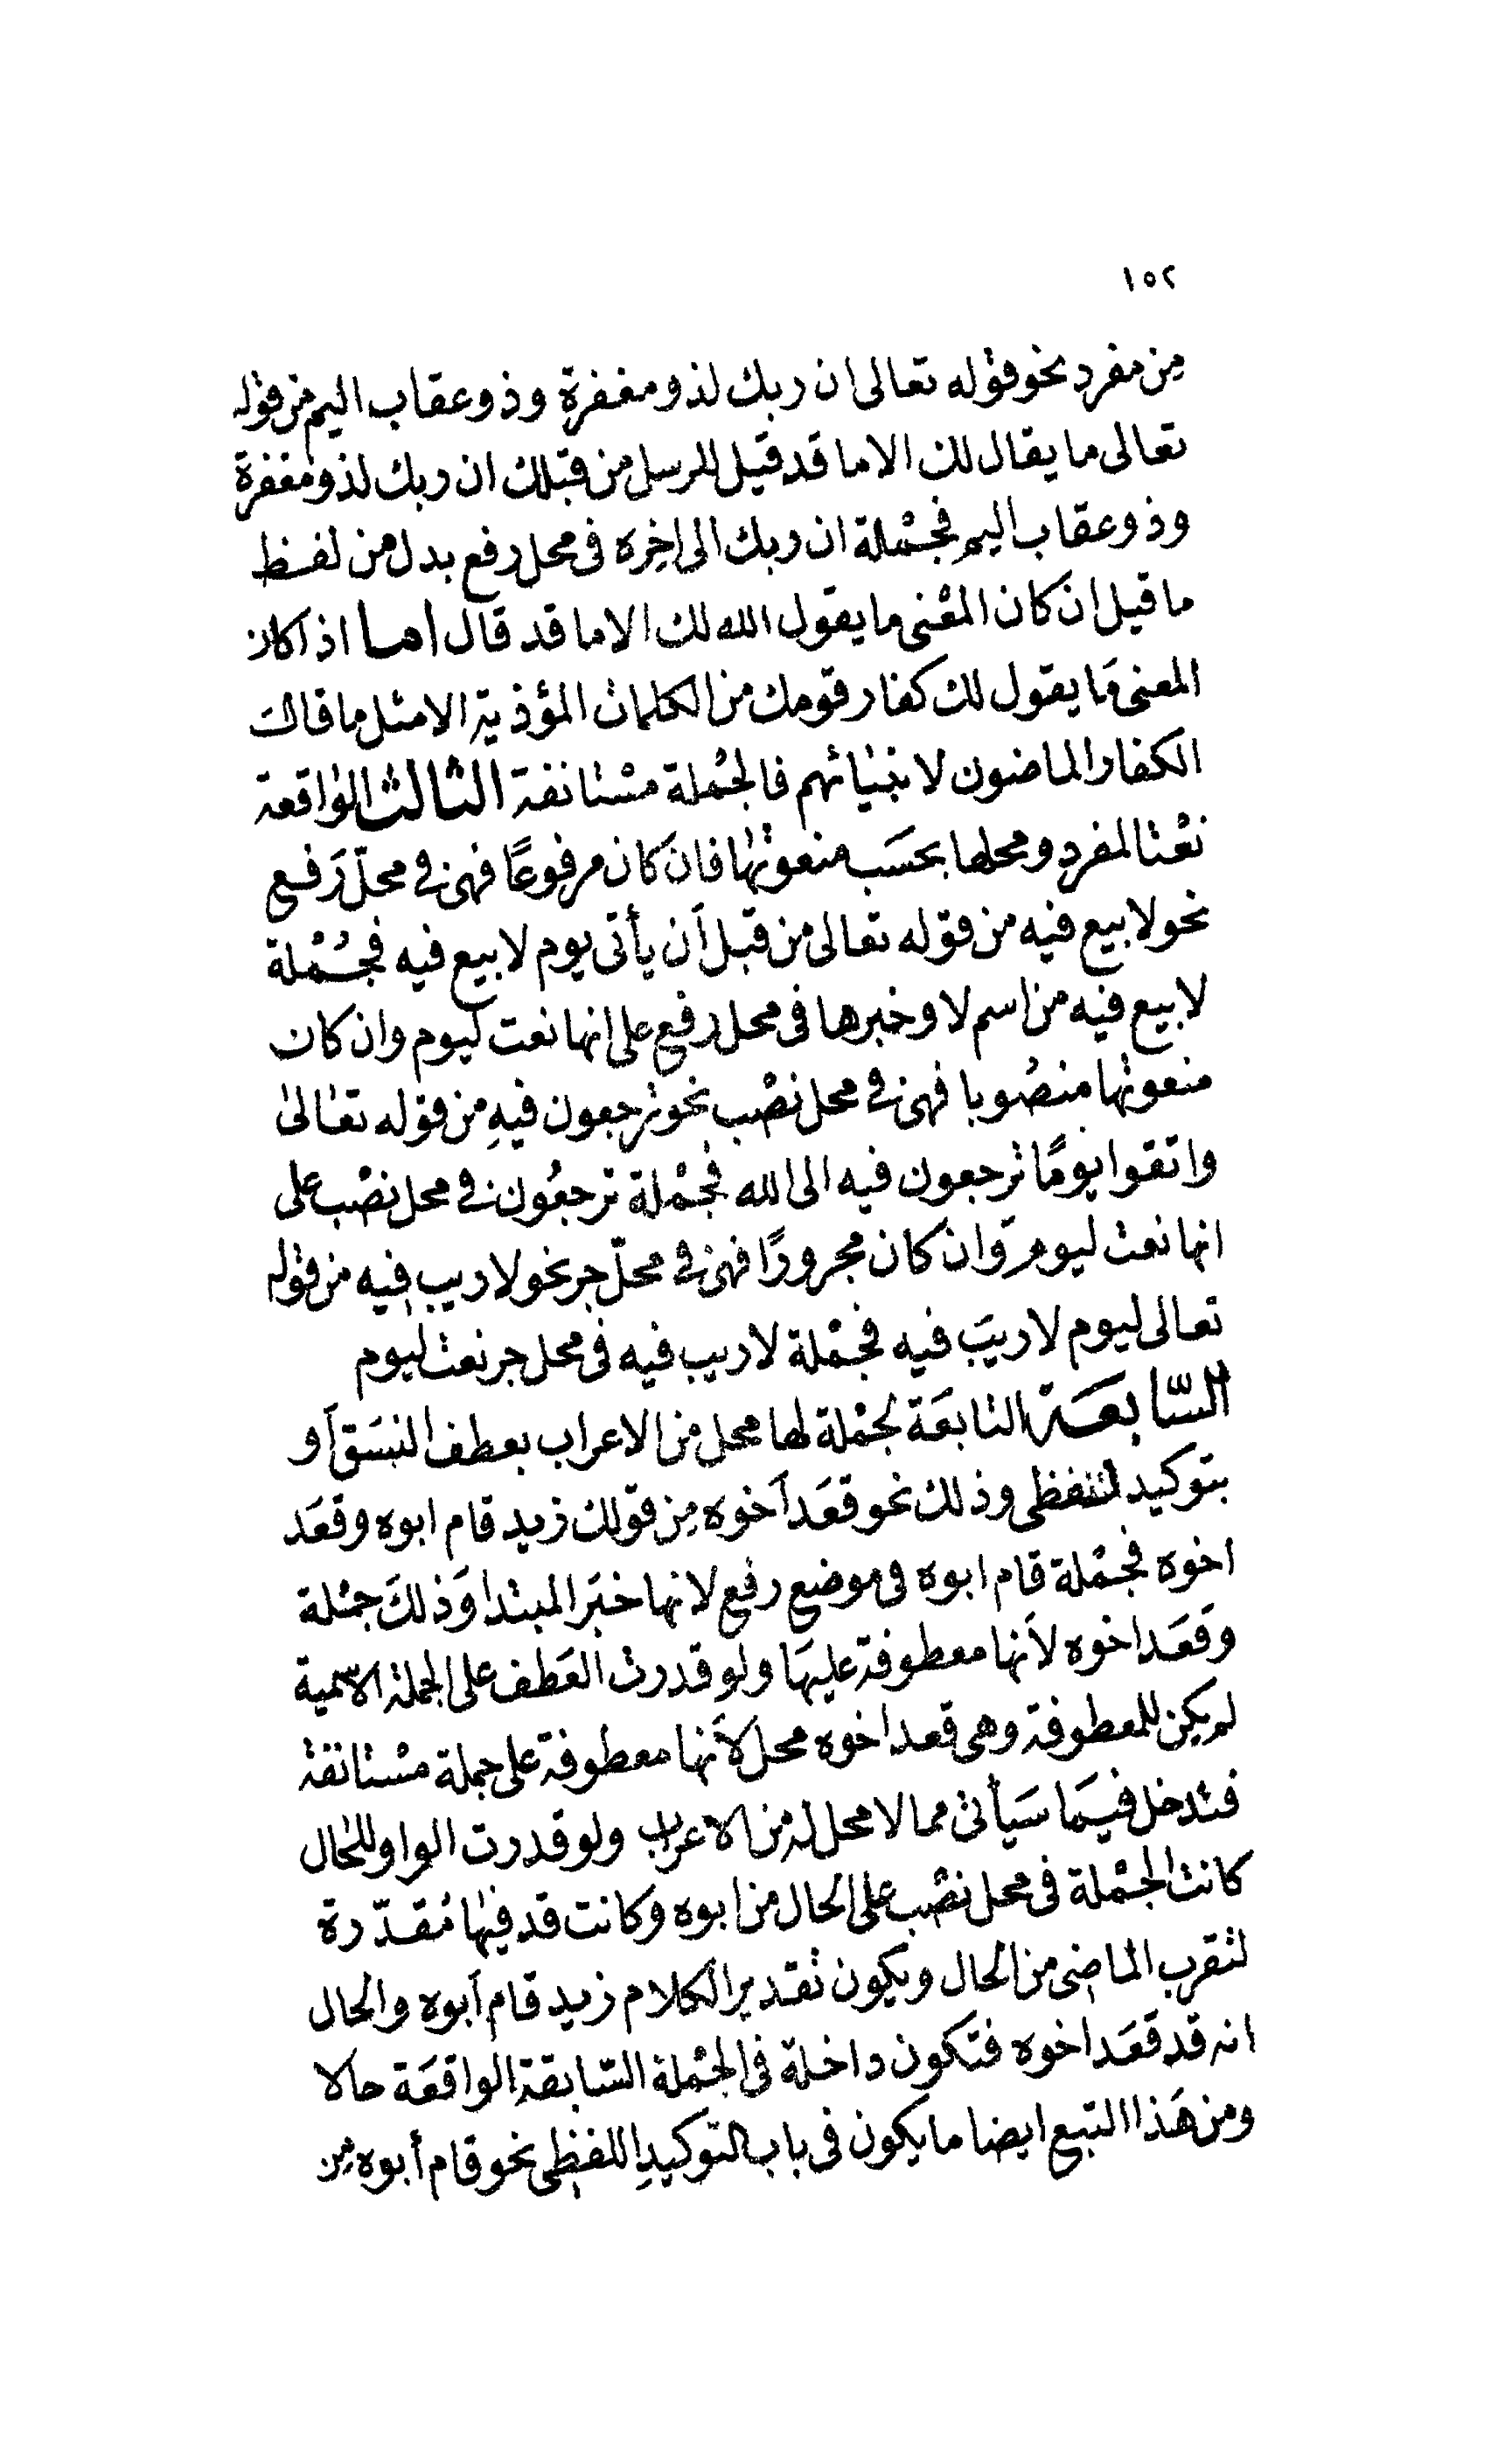 ١٥٢
مِن مفرد نحو قوله تعالى ان ربك لذو مغفرة وذو عقاب اليم من قوله
تعالى ما يقال لك الا ما قد قيل للرسل من قبلك ان ربك لذو مغفرة
وذو عقاب اليم فجمْلة ان ربك الى اخِره فى محل رفع بدل من لفظ
ما قيل ان كان المعْنى ما يقول الله لك الا ما قد قال اما اذا كان
المعنى مَا يقول لك كفار قومك من الكلمات المؤذية الا مثل ما قالت
الكفار الماضون لانبيائهم فالجمْلة مسْتانفة الثالث الواقعة
نعْتا لمفرد ومحلها بحسَب منعوتها فان كان مرفوعًا فهى فى محلّ رَفع
نحو لا بيع فيه من قوله تعالى من قبل أن يأتى يوم لا بيع فيه فجُمْلة
لا بيع فيه من اسم لا وخبرها فى محل رفع على انها نعت ليوم وان كان
منعوتها منصُوبا فهى فى محل نصْب نحو ترجعون فيهِ من قوله تعالىٰ
واتقوا يومًا ترجعون فيه الى الله فجمْلة ترجعُون فى محل نصْب على
انها نعت ليوم وَان كان مجرورًا فهى فى محلّ جر نحو لا ريب فيه من قوله
تعالى ليوم لا ريبَ فيه فجمْلة لا ريب فيه فى محل جر نعت ليوم
السّابعَة التابعَة لجمْلة لها محل من الاعراب بعطف النسَق أو
بتوكيد لفظى وذلك نحو قعَد أخوه مِن قولك زيد قام ابوه وقعَد
اخوه فجمْلة قام ابوه فى موضع رفع لانها خبَر المبتدا وَذلكَ جمْلة
وقعَد اخوه لأنها معطوفة عليهَا ولو قدرت العَطف على الجملة الاسمية
لم يكن للمعطوفة وهى قعد اخوه محل لأنها معطوفة على جملة مسْتانفة
فتدخل فيمَا سَيأتى مما لا محل له من الاعراب ولو قدرت الواو للحال
كانت الجمْلة فى محل نصْب على الحال من ابوه وكانت قد فيها مُقدّرة
لتقرب الماضى من الحال ويكون تقدير الكلام زيد قام أبوه والحال
انه قد قعَد اخوه فتكون داخلة فى الجمْلة السّابقة الواقعَة حالا
ومن هَذا التبع ايضا ما يكون فى باب التوكيدِ اللفظى نحو قام أبوه مِن